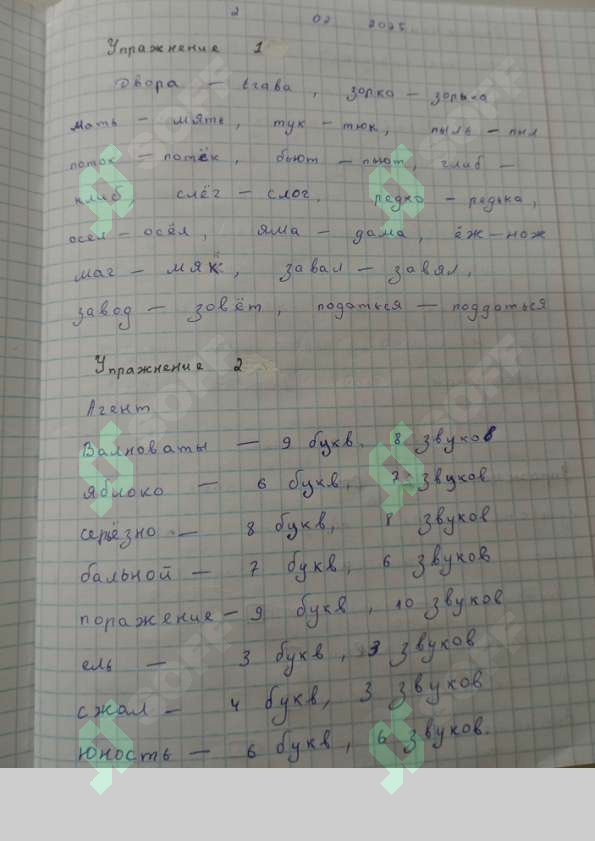 2 02 2025
Упражнение 1
Двора – глава, зорко – зорька
мать – мять, тук – тюк, пыль – пыл
поток – потёк, бьют – пьют, глиб –
клиб, слёг – слог, редко – редька,
осел – осёл, яма – дама, ёж – нож
маг – мяк, завал – завял,
завод – зовёт, податься – поддаться
Упражнение 2
Агент
Валноваты – 9 букв, 8 звуков
яблоко – 6 букв, 7 звуков
серьёзно – 8 букв, 8 звуков
бальной – 7 букв, 6 звуков
поражение – 9 букв, 10 звуков
ель – 3 букв, 3 звуков
сжал – 4 букв, 3 звуков
юность – 6 букв, 6 звуков.